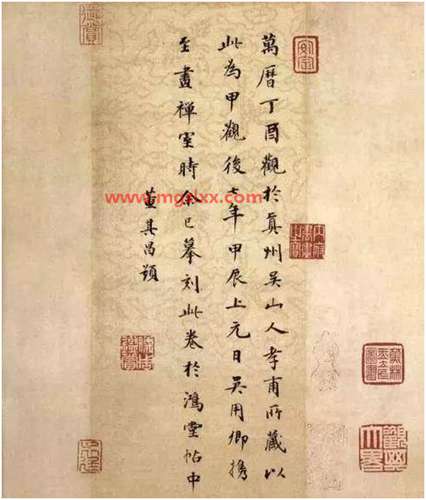 萬曆丁酉觀於真州吳山人孝甫所藏以
此為甲觀後七年甲辰上元日吳用卿携
至畫禪室時余已摹刻此卷於鴻堂帖中
董其昌題
www.mgslxx.com